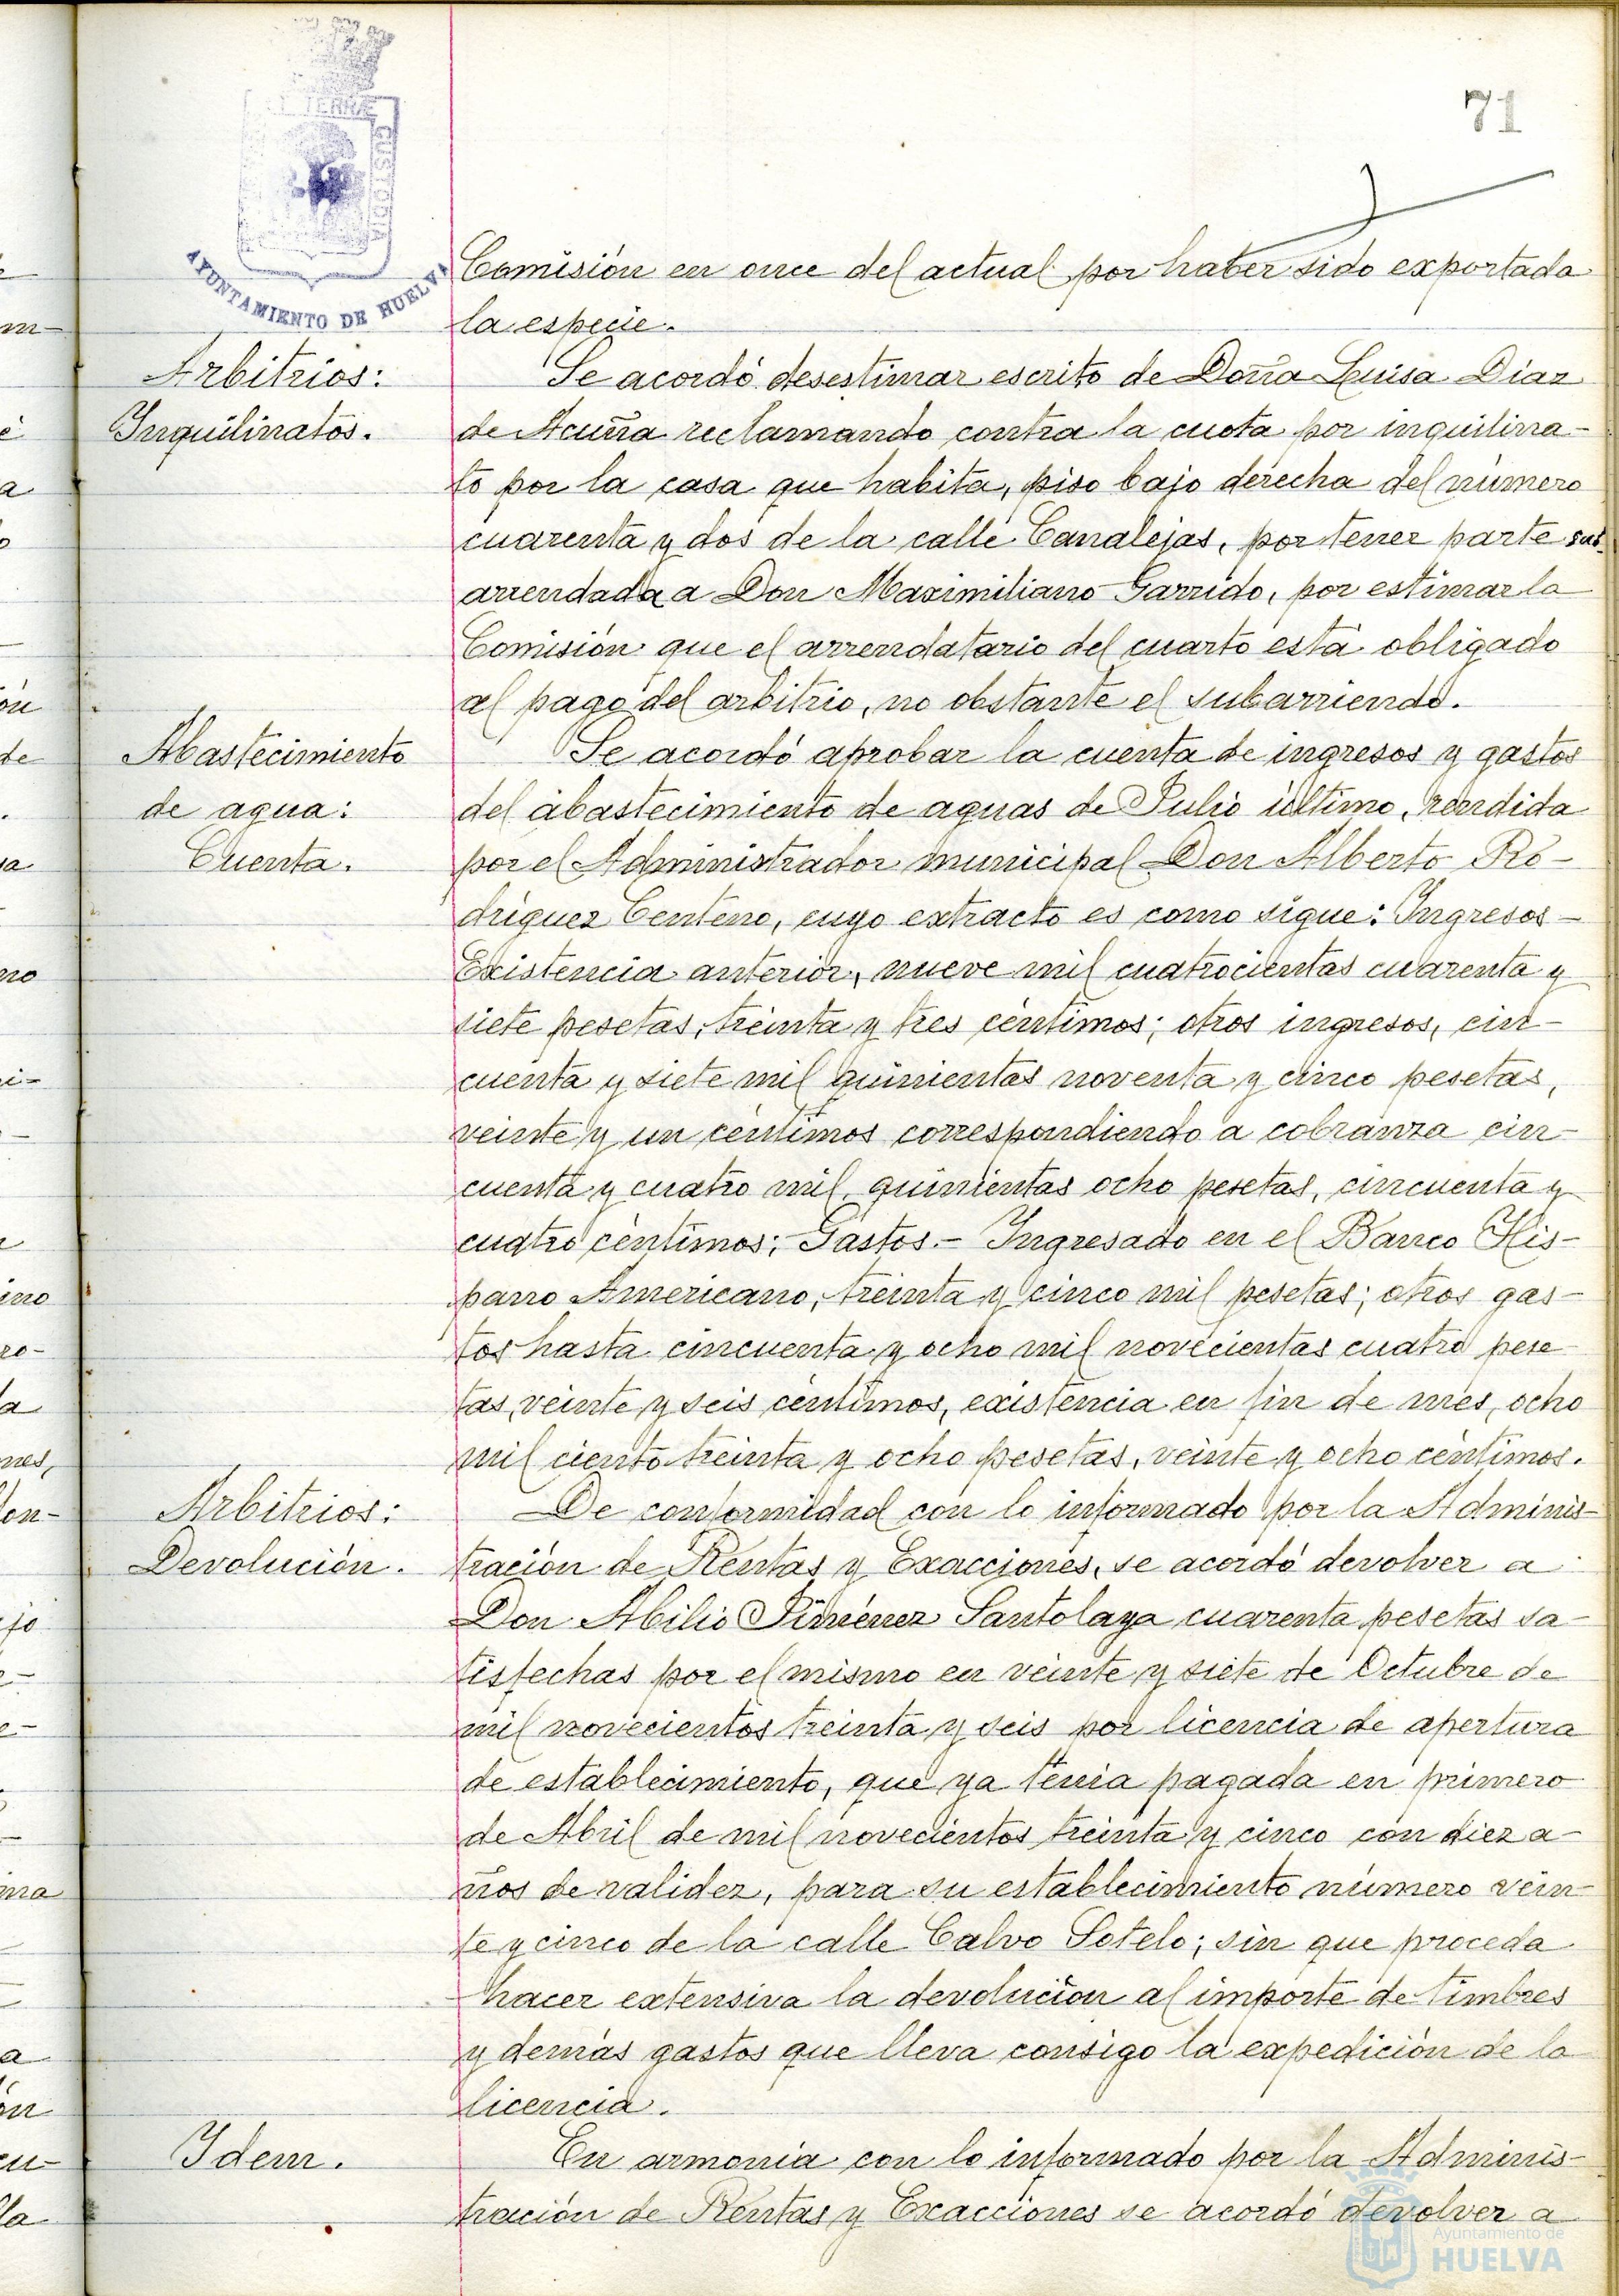 71
TERRÆ
CUSTODIA
AYUNTAMIENTO DE HUELVA
Comisión en once del actual por haber sido exportada
la especie.
Arbitrios:
Inquilinatos.
Se acordó desestimar escrito de Doña Luisa Diaz
de Acuña reclamando contra la cuota por inquilina-
to por la casa que habita, piso bajo derecha del número
cuarenta y dos de la calle Canalejas, por tener parte sub-
arrendada a Don Maximiliano Garrido, por estimar la
Comisión que el arrendatario del cuarto está obligado
al pago del arbitrio, no obstante el subarriendo.
Abastecimiento
de agua:
Cuenta.
Se acordó aprobar la cuenta de ingresos y gastos
del abastecimiento de aguas de Julio último, rendida
por el Administrador municipal Don Alberto Ro-
driguez Centeno, cuyo extracto es como sigue: Ingresos-
Existencia anterior, nueve mil cuatrocientas cuarenta y
siete pesetas, treinta y tres céntimos; otros ingresos, cin-
cuenta y siete mil quinientas noventa y cinco pesetas,
veinte y un céntimos correspondiendo a cobranza cin-
cuenta y cuatro mil, quinientas ocho pesetas, cincuenta y
cuatro céntimos; Gastos.- Ingresado en el Banco His-
pano Americano, treinta y cinco mil pesetas; otros gas-
tos hasta cincuenta y ocho mil novecientas cuatro pese-
tas, veinte y seis céntimos, existencia en fin de mes, ocho
mil ciento treinta y ocho pesetas, veinte y ocho céntimos.
Arbitrios:
Devolución.
De conformidad con lo informado por la Adminis-
tración de Rentas y Exacciones, se acordó devolver a
Don Abilio Jiménez Santolaya cuarenta pesetas sa-
tisfechas por el mismo en veinte y siete de Octubre de
mil novecientos treinta y seis por licencia de apertura
de establecimiento, que ya tenia pagada en primero
de Abril de mil novecientos treinta y cinco con diez a-
ños de validez, para su establecimiento número vein-
te y cinco de la calle Calvo Sotelo; sin que proceda
hacer extensiva la devolución al importe de timbres
y demás gastos que lleva consigo la expedición de la
licencia.
Idem.
En armonia con lo informado por la Adminis-
tración de Rentas y Exacciones se acordó devolver a
Ayuntamiento de
HUELVA